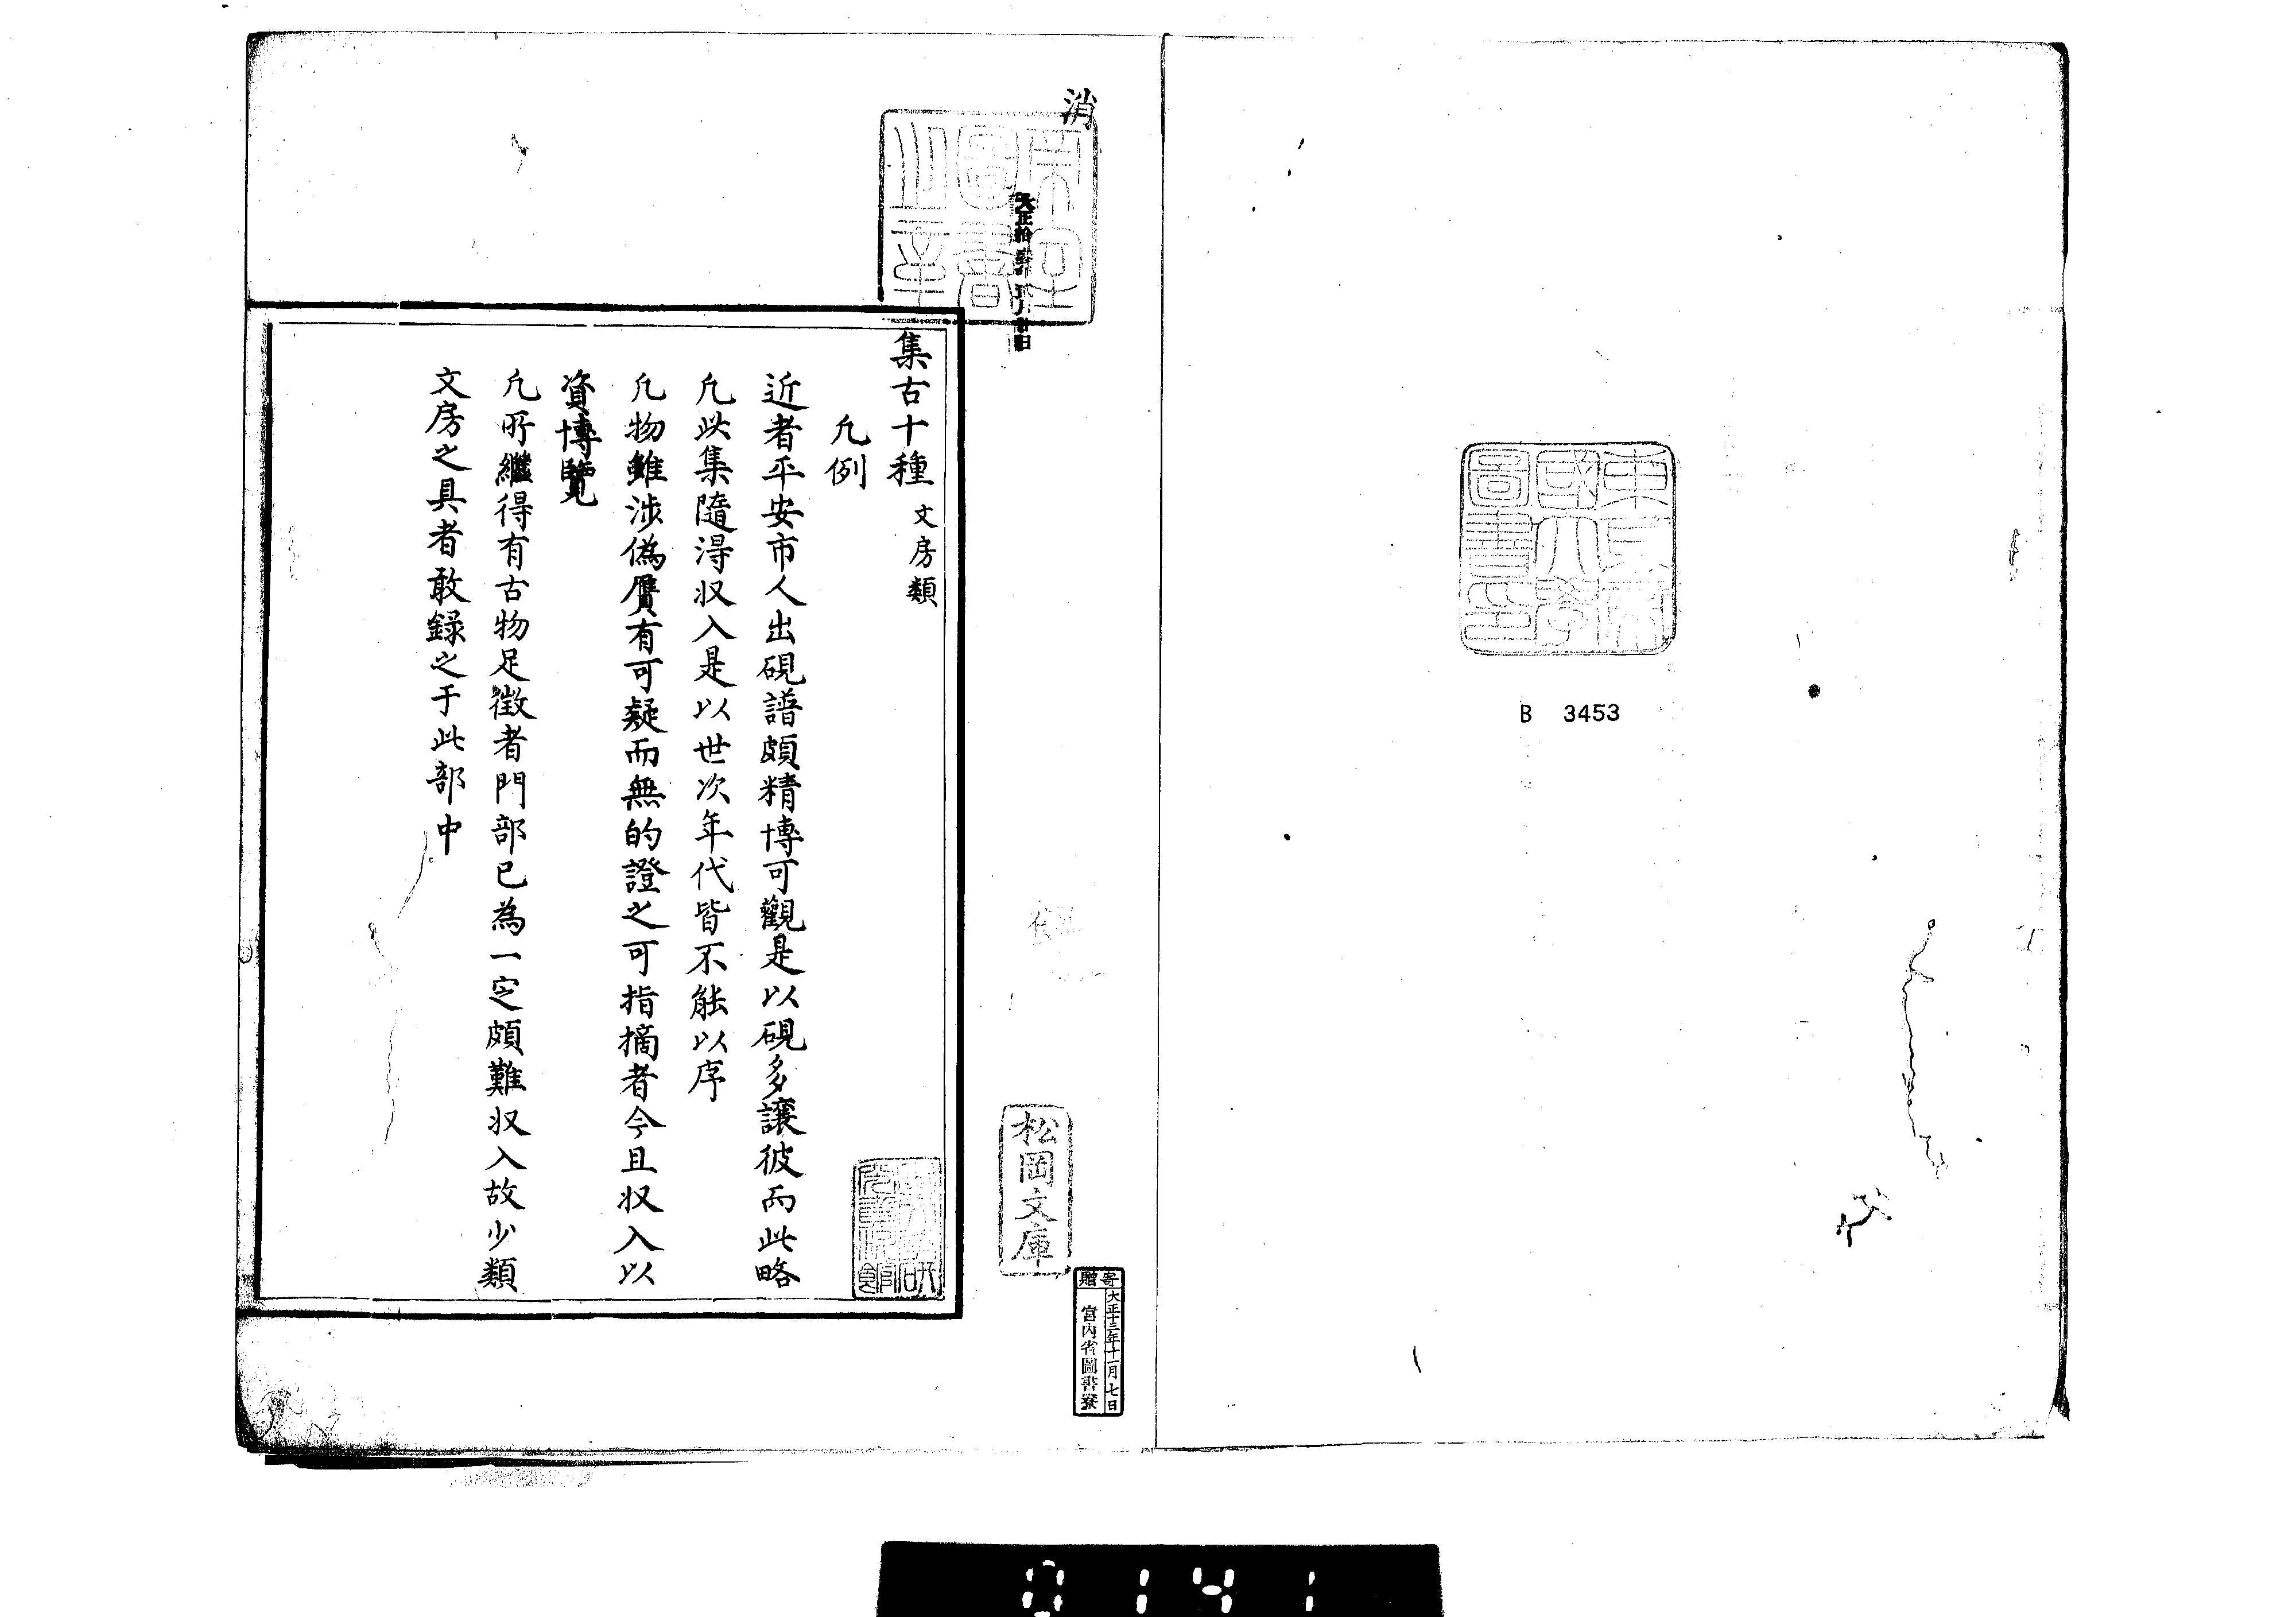 東京帝
國大學
圖書印
B 3453
消
帝室
圖書
之章
松岡文庫
寄贈
大正十三年十一月七日
宮内省圖書寮
集古十種 文房類
凡例
近者平安市人出硯譜頗精博可觀是以硯多讓彼而此略
凡此集隨得収入是以世次年代皆不能以序
凡物雖涉偽贋有可疑而無的證之可指摘者今且収入以
資博覽
凡所繼得有古物足徴者門部已為一定頗難収入故少類
文房之具者敢録之于此部中
0141